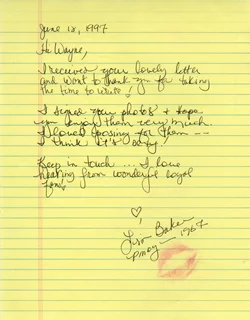 June 18, 1997
Hi Wayne,
I received your lovely letter
and want to thank you for taking
the time to write!
I signed your photos & hope
you enjoy them very much.
I loved posing for them --
I think it's
Keep in touch ... I love
hearing from wonderful loyal
fans.
Lisa Baker
pmoy 1967